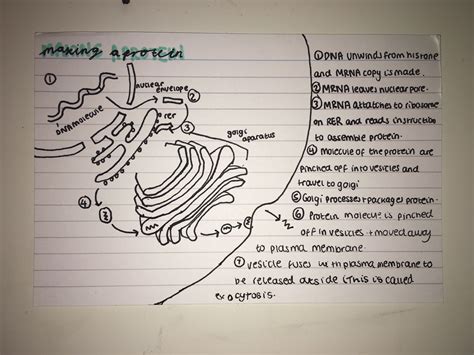 making a protein
①
nuclear
envelope
②
DNA MOLECULE
rer
③
golgi
apparatus
④
① DNA unwinds from histone
and MRNA copy is made.
② MRNA leaves nuclear pore.
③ MRNA attatches to ribosome
on RER and reads instruction
to assemble protein.
④ molecule of the protein are
pinched off into vesicles and
travel to golgi
⑤ Golgi processes + packages protein.
⑥ Protein molecule is pinched
off in vesicles + moved away
to plasma membrane.
⑦ vesicle fuses with plasma membrane to
be released outside (This is called
exocytosis.